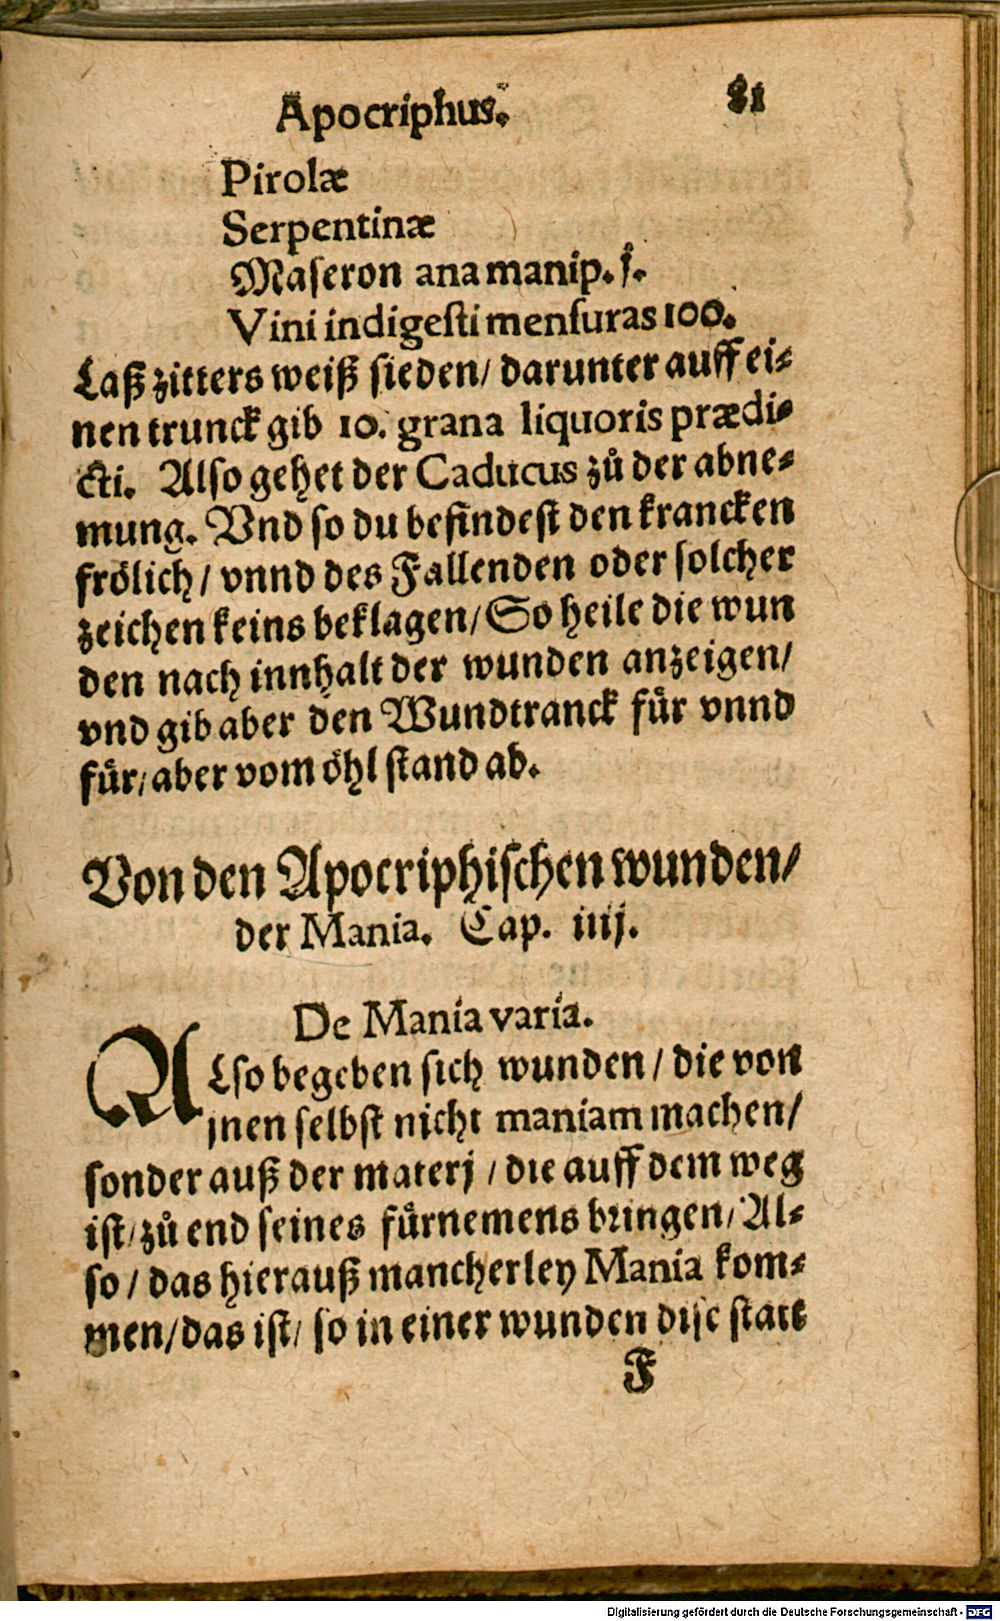 Apocriphus. 81
Pirolæ
Serpentinæ
Maſeron ana manip. j.
Vini indigeſti menſuras 100.
Laß zitters weiß ſieden/ darunter auff ei⸗
nen trunck gib 10. grana liquoris prædi⸗
cti. Alſo gehet der Caducus zů der abne⸗
mung. Vnd ſo du befindeſt den krancken
frölich / vnnd des Fallenden oder ſolcher
zeichen keins beklagen/ So heile die wun
den nach innhalt der wunden anzeigen/
vnd gib aber den Wundtranck für vnnd
für/ aber vom öhl ſtand ab.
Von den Apocriphiſchen wunden/
der Mania. Cap. iiij.
De Mania varia.
ALſo begeben ſich wunden / die von
jnen ſelbſt nicht maniam machen/
ſonder auß der materj / die auff dem weg
iſt/ zů end ſeines fürnemens bringen/ Al⸗
ſo / das hierauß mancherley Mania kom⸗
men/ das iſt/ ſo in einer wunden diſe ſtatt
F
Digitalisierung gefördert durch die Deutsche Forschungsgemeinschaft - DFG